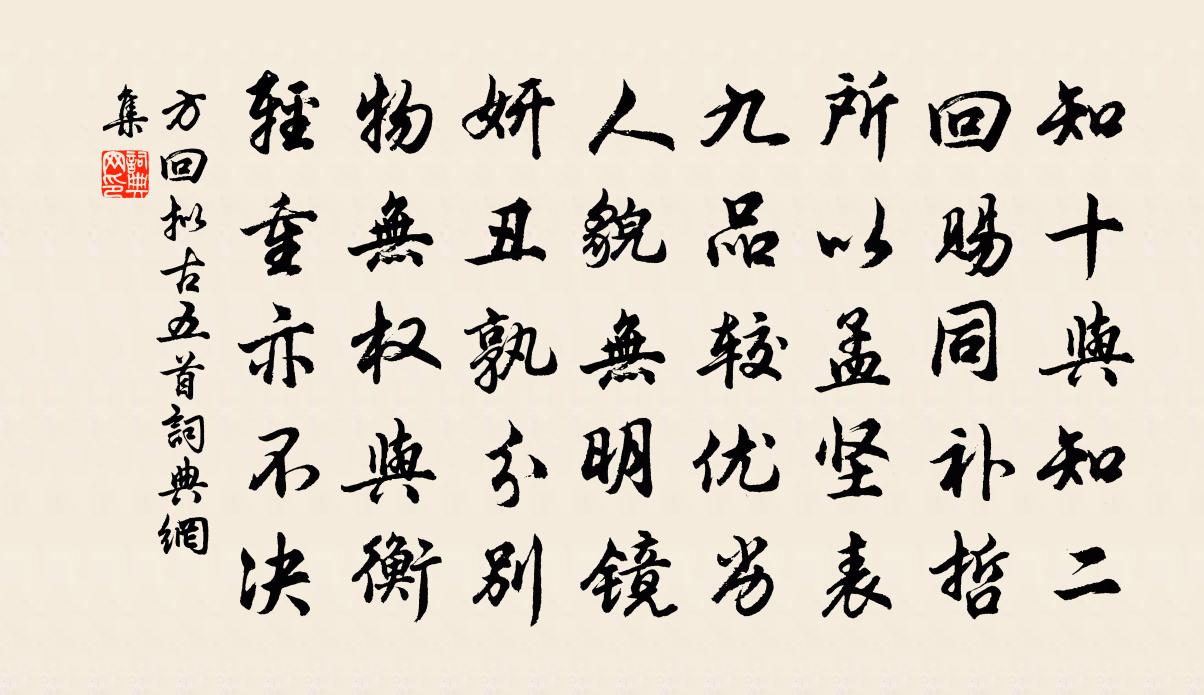 知十與知二
回賜同补哲
所以孟坚表
九品较优劣
人貌無明镜
妍丑孰分别
物無权與衡
輕重亦不决
方回拟古五首詞典網
集
詞典网印